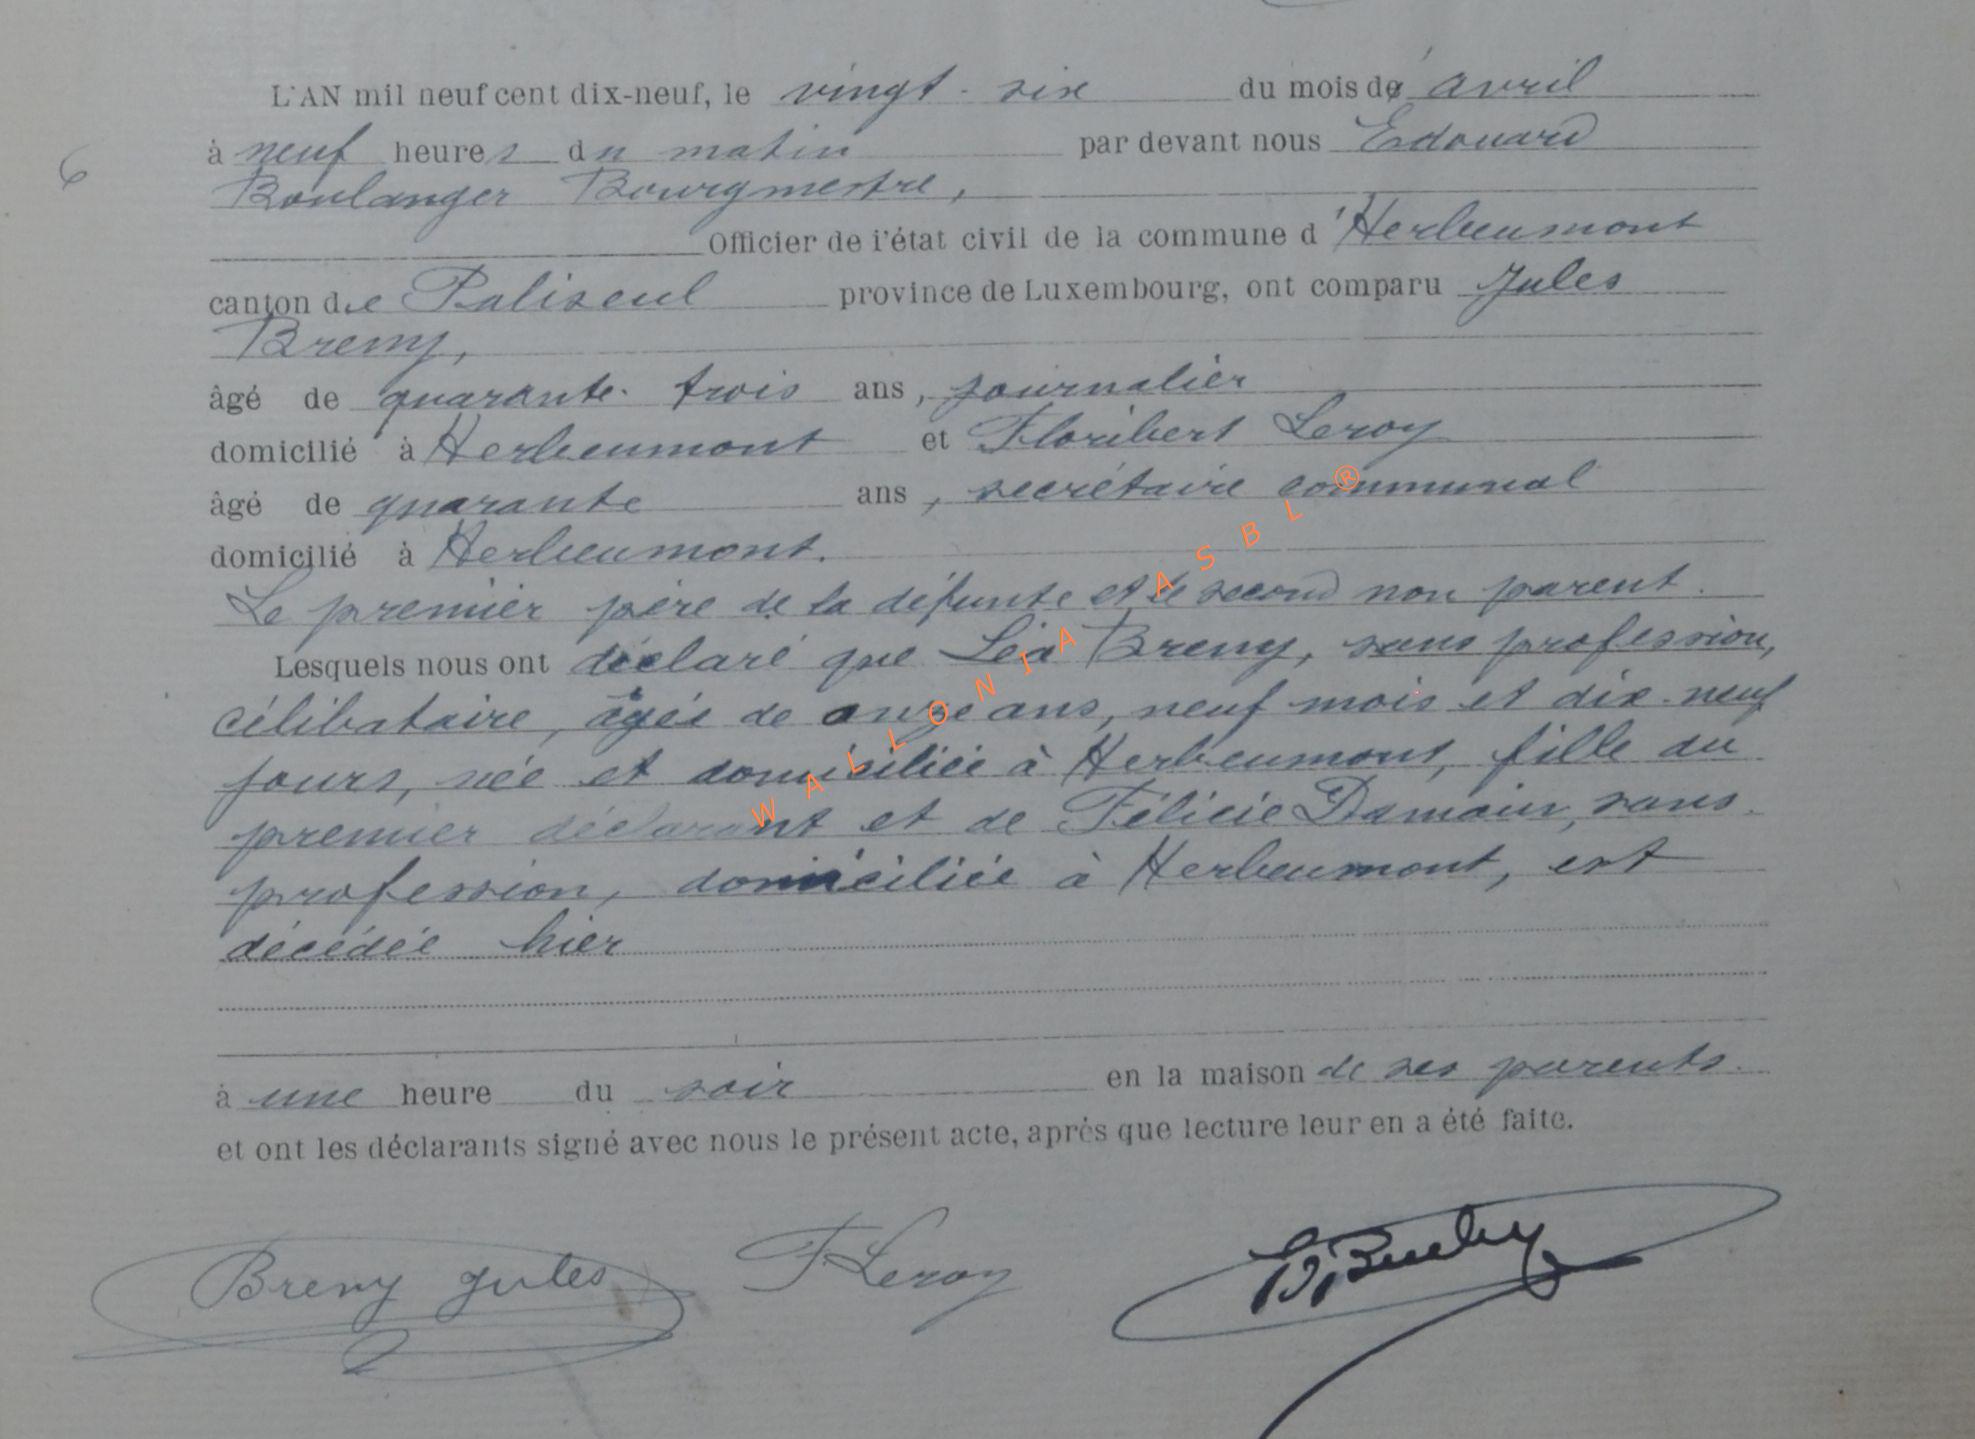 L'AN mil neuf cent dix-neuf, le vingt-six du mois de avril
6
à neuf heures du matin par devant nous Edouard
Boulanger Bourgmestre,
Officier de l'état civil de la commune d'Herbeumont
canton de Paliseul province de Luxembourg, ont comparu Jules
Breny,
âgé de quarante-trois ans, journalier
domicilié à Herbeumont et Floribert Leroy
âgé de quarante ans, secrétaire communal
domicilié à Herbeumont.
Le premier père de la défunte et le second non parent.
Lesquels nous ont déclaré que Léa Breny, sans profession,
célibataire, âgée de onze ans, neuf mois et dix-neuf
jours, née et domiciliée à Herbeumont, fille du
premier déclarant et de Félicie Damain, sans
profession, domiciliée à Herbeumont, est
décédée hier
à une heure du soir en la maison de ses parents.
et ont les déclarants signé avec nous le présent acte, après que lecture leur en a été faite.
Breny Jules F Leroy
WALLONIA ASBL ®